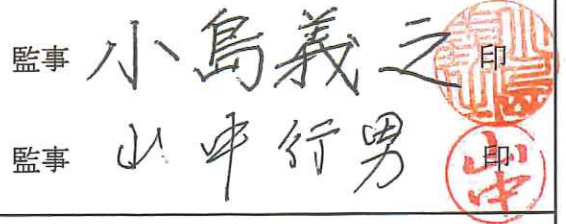 監事 小島義之 印
監事 山中行男 印
山中